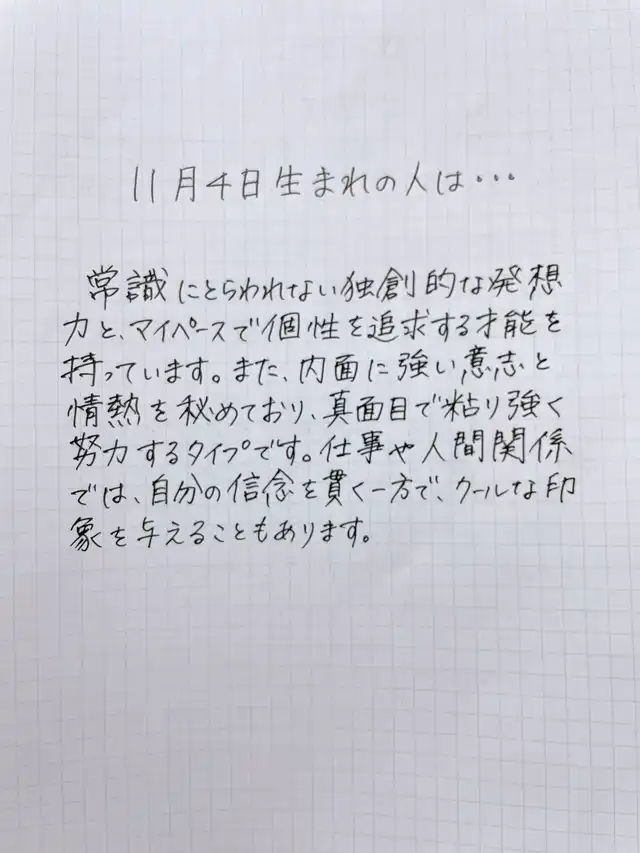 11月4日生まれの人は・・・
常識にとらわれない独創的な発想
力と、マイペースで個性を追求する才能を
持っています。また、内面に強い意志と
情熱を秘めており、真面目で粘り強く
努力するタイプです。仕事や人間関係
では、自分の信念を貫く一方で、クールな印
象を与えることもあります。